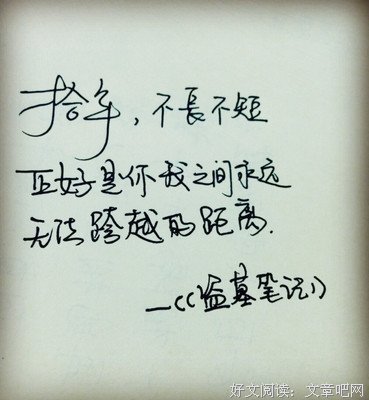 拾年，不長不短
正好是你我之间永远
无法跨越的距离.
—《盗墓笔记》
好文阅读：文章吧网